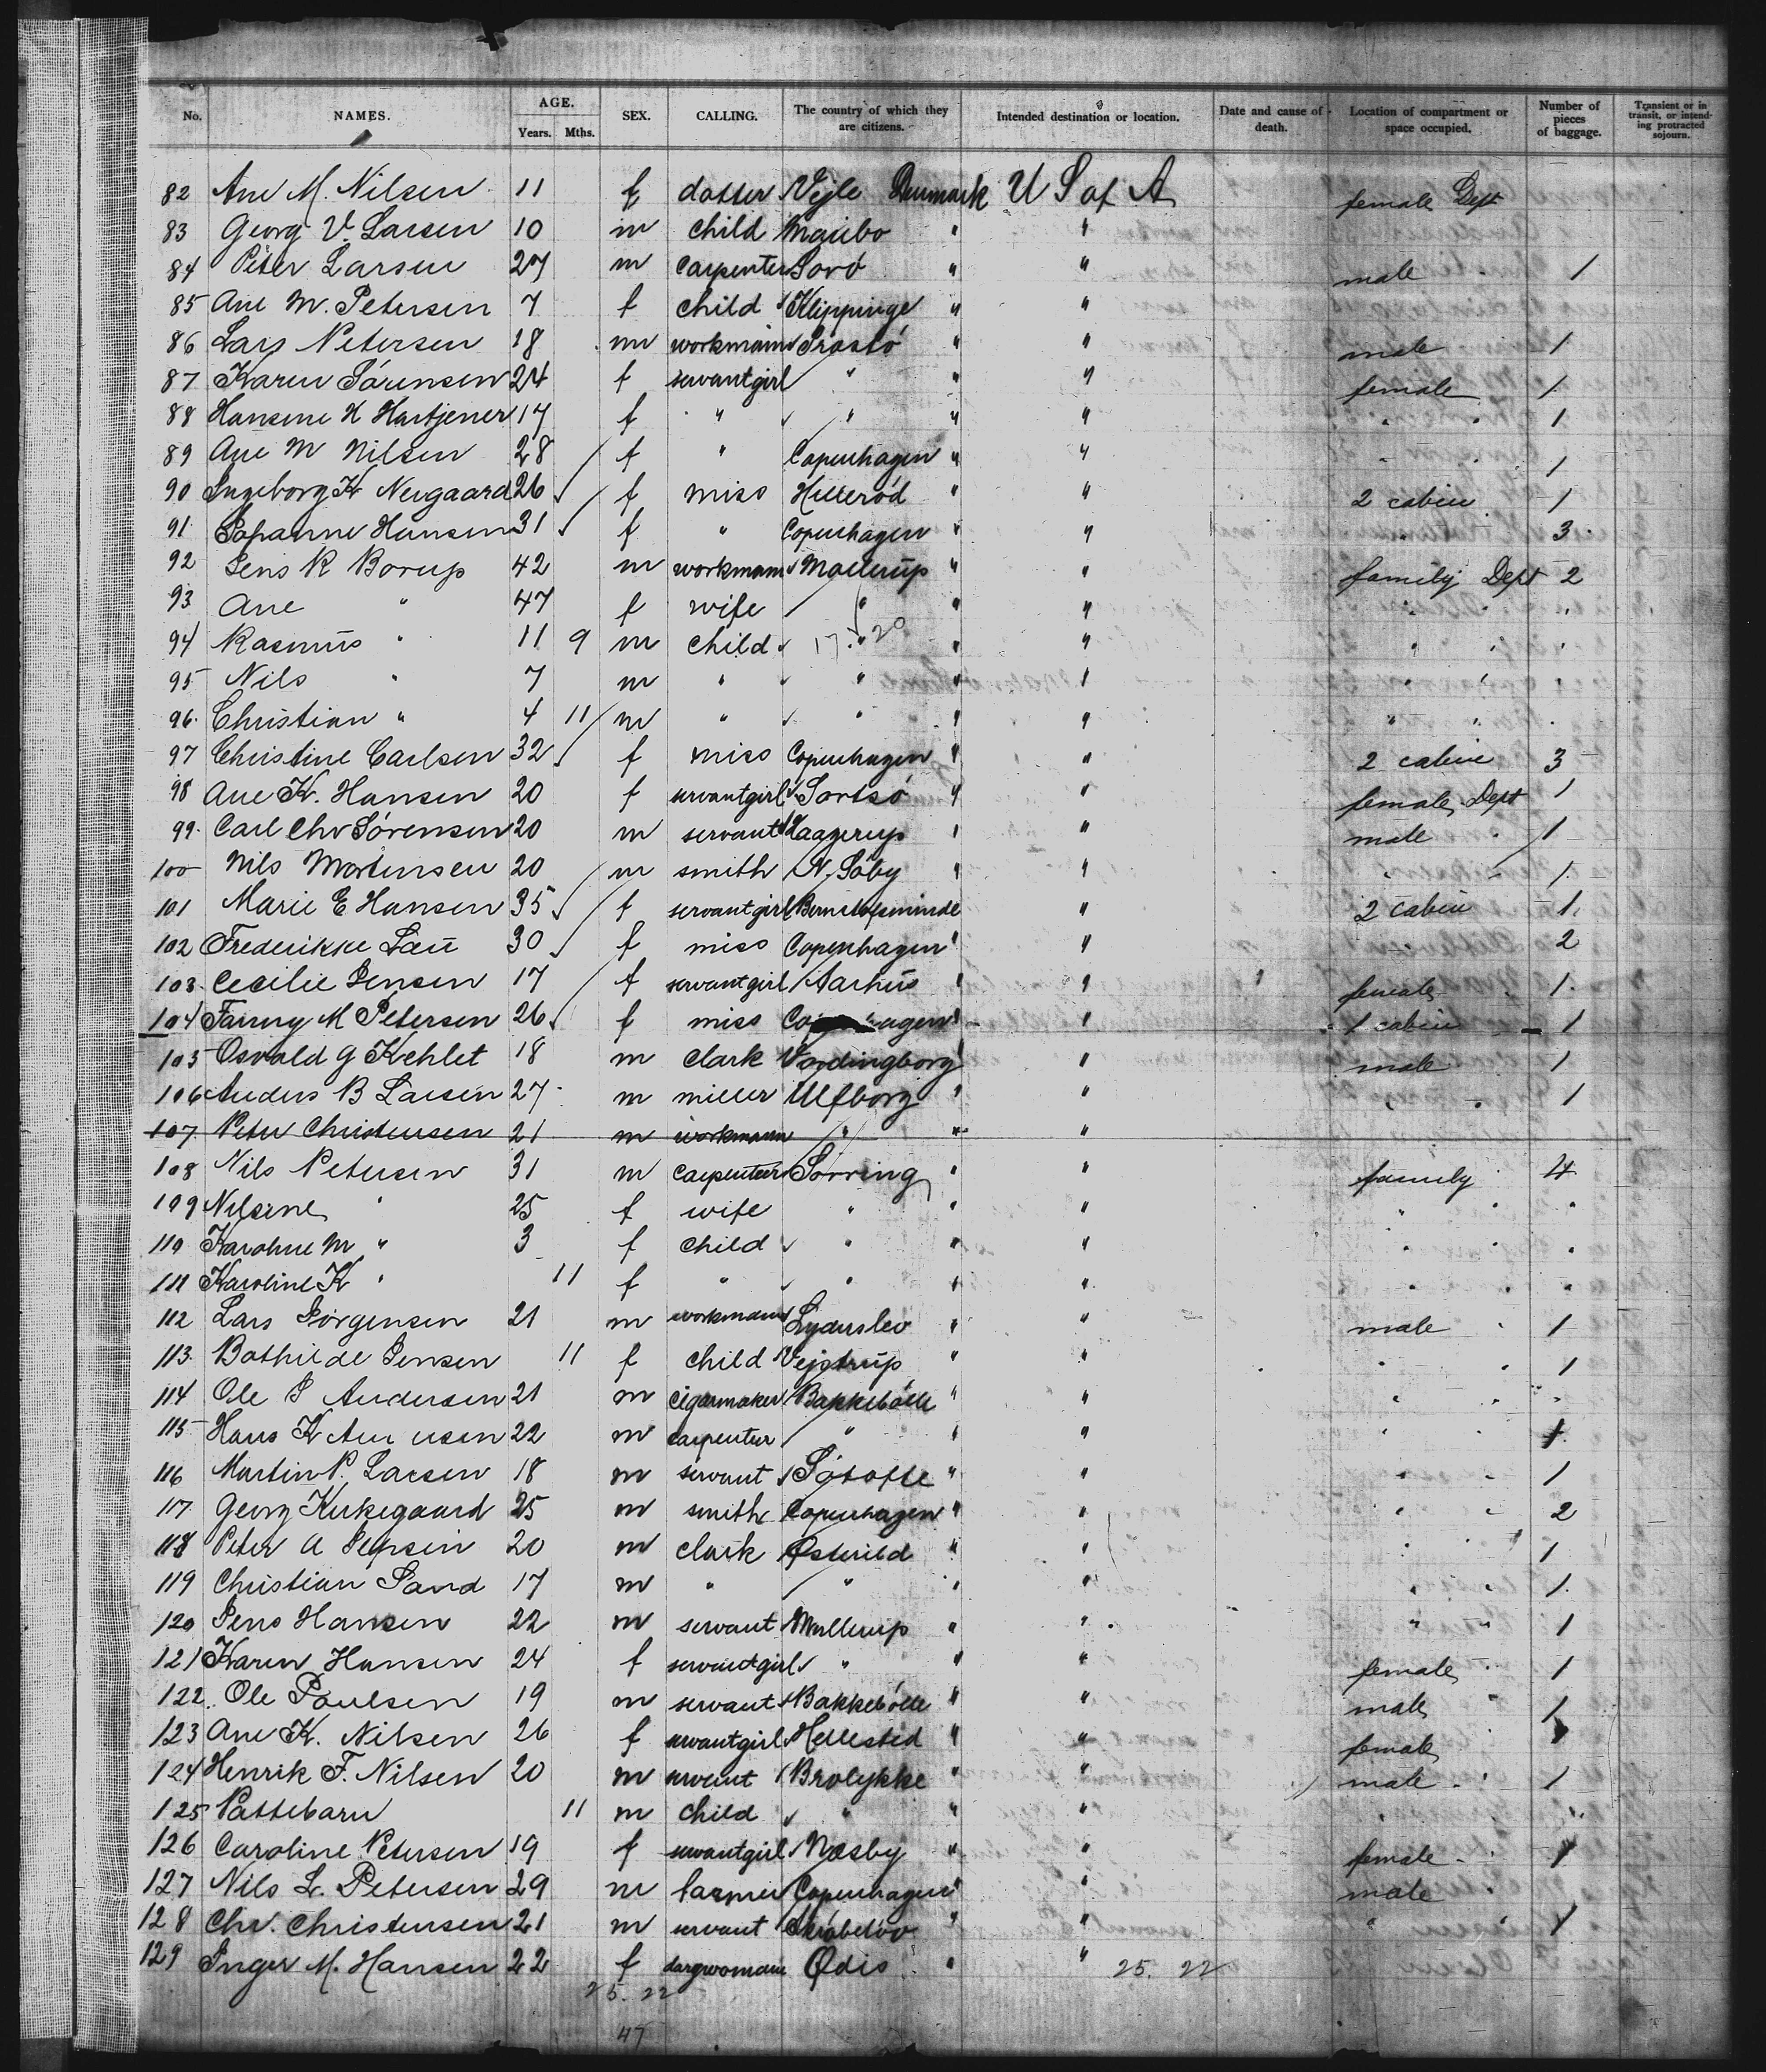 No. NAMES. AGE. Years. Mths. SEX. CALLING. The country of which they are citizens. Intended destination or location. Date and cause of death. Location of compartment or space occupied. Number of pieces of baggage. Transient or in transit, or intending protracted sojourn.
82 Ane M. Nilsen 11 f dotter Vejle Denmark U S of A female Dept
83 Georg V. Larsen 10 m child Maribo " "
84 Peter Larsen 27 m carpenter Sorö " " male " 1
85 Ane M. Petersen 7 f child Klippinge " "
86 Lars Petersen 18 m workmann Prastö " " male 1
87 Karen Sörensen 24 f servantgirl " " " female 1
88 Hansine H Hartjener 17 f " " " " " " 1
89 Ane M Nilsen 28 f " Copenhagen " " " " 1
90 Ingeborg K Neugaard 26 f miss Hilleröd " " 2 cabin 1
91 Hansen 31 f " Copenhagen " " " 3
92 Jens R Borup 42 m workmann Mollerup " " family Dept 2
93 Ane " 47 f wife " " " " " "
94 Rasmus " 11 9 m child 17 " 20 " " " " "
95 Nils " 7 m " " " " " "
96 Christian " 4 11 m " " " " " "
97 Christine Carlsen 32 f miss Copenhagen " " 2 cabin 3
98 Ane K. Hansen 20 f servantgirl Sortsö " " female Dept 1
99 Carl Chr Sörensen 20 m servant " " male " 1
100 Nils Mortensen 20 m smith N. Söby " " " " 1
101 Marie E Hansen 35 f servantgirl " 2 cabin 1
102 Frederikke Lau 30 f miss Copenhagen " " " 2
103 Cecilie Jensen 17 f servantgirl Aarhus " " female " 1
104 Fanny M Petersen 26 f miss " " 1 cabin 1
105 Osvald G Kehlet 18 m clark Vordingborg " " male 1
106 Anders B Larsen 27 m miller Ulfborg " " " " 1
107 Peter Christensen 21 m workmann " " "
108 Nils Petersen 31 m carpenter Sorring " " family 4
109 Nilsine " 25 f wife " " " " " "
110 Karoline M " 3 f child " " " " " "
111 Karoline K " 11 f " " " " " " "
112 Lars Jörgensen 21 m workmann Lyderslev " " male " 1
113 Bothilde Jensen 11 f child Vejstrup " " " 1
114 Ole P Andersen 21 m cigarmaker Bakkebölle " " " " "
115 Hans K 22 m carpenter " " " " 1
116 Martin P. Larsen 18 m servant " " " " 1
117 Georg Kirkegaard 25 m smith Copenhagen " " " " 2
118 Peter A Jepsen 20 m clark Østerild " " " 1
119 Christian Sand 17 m " " " " " " 1
120 Jens Hansen 22 m servant Mullerup " " " " 1
121 Karen Hansen 24 f servantgirl " " " female " 1
122 Ole Poulsen 19 m servant Bakkebölle " " male " 1
123 Ane K. Nilsen 26 f servantgirl Hellested " " female 1
124 Henrik F. Nilsen 20 m servant Brolykke " " male " 1
125 Pattebarn 11 m child " " " " "
126 Caroline Petersen 19 f servantgirl Næsby " " female " 1
127 Nils L. Petersen 29 m farmer Copenhagen " " male "
128 Chr. Christensen 21 m servant " " " " 1
129 Inger M. Hansen 22 f Ødis " " 25. 22
25. 22
47